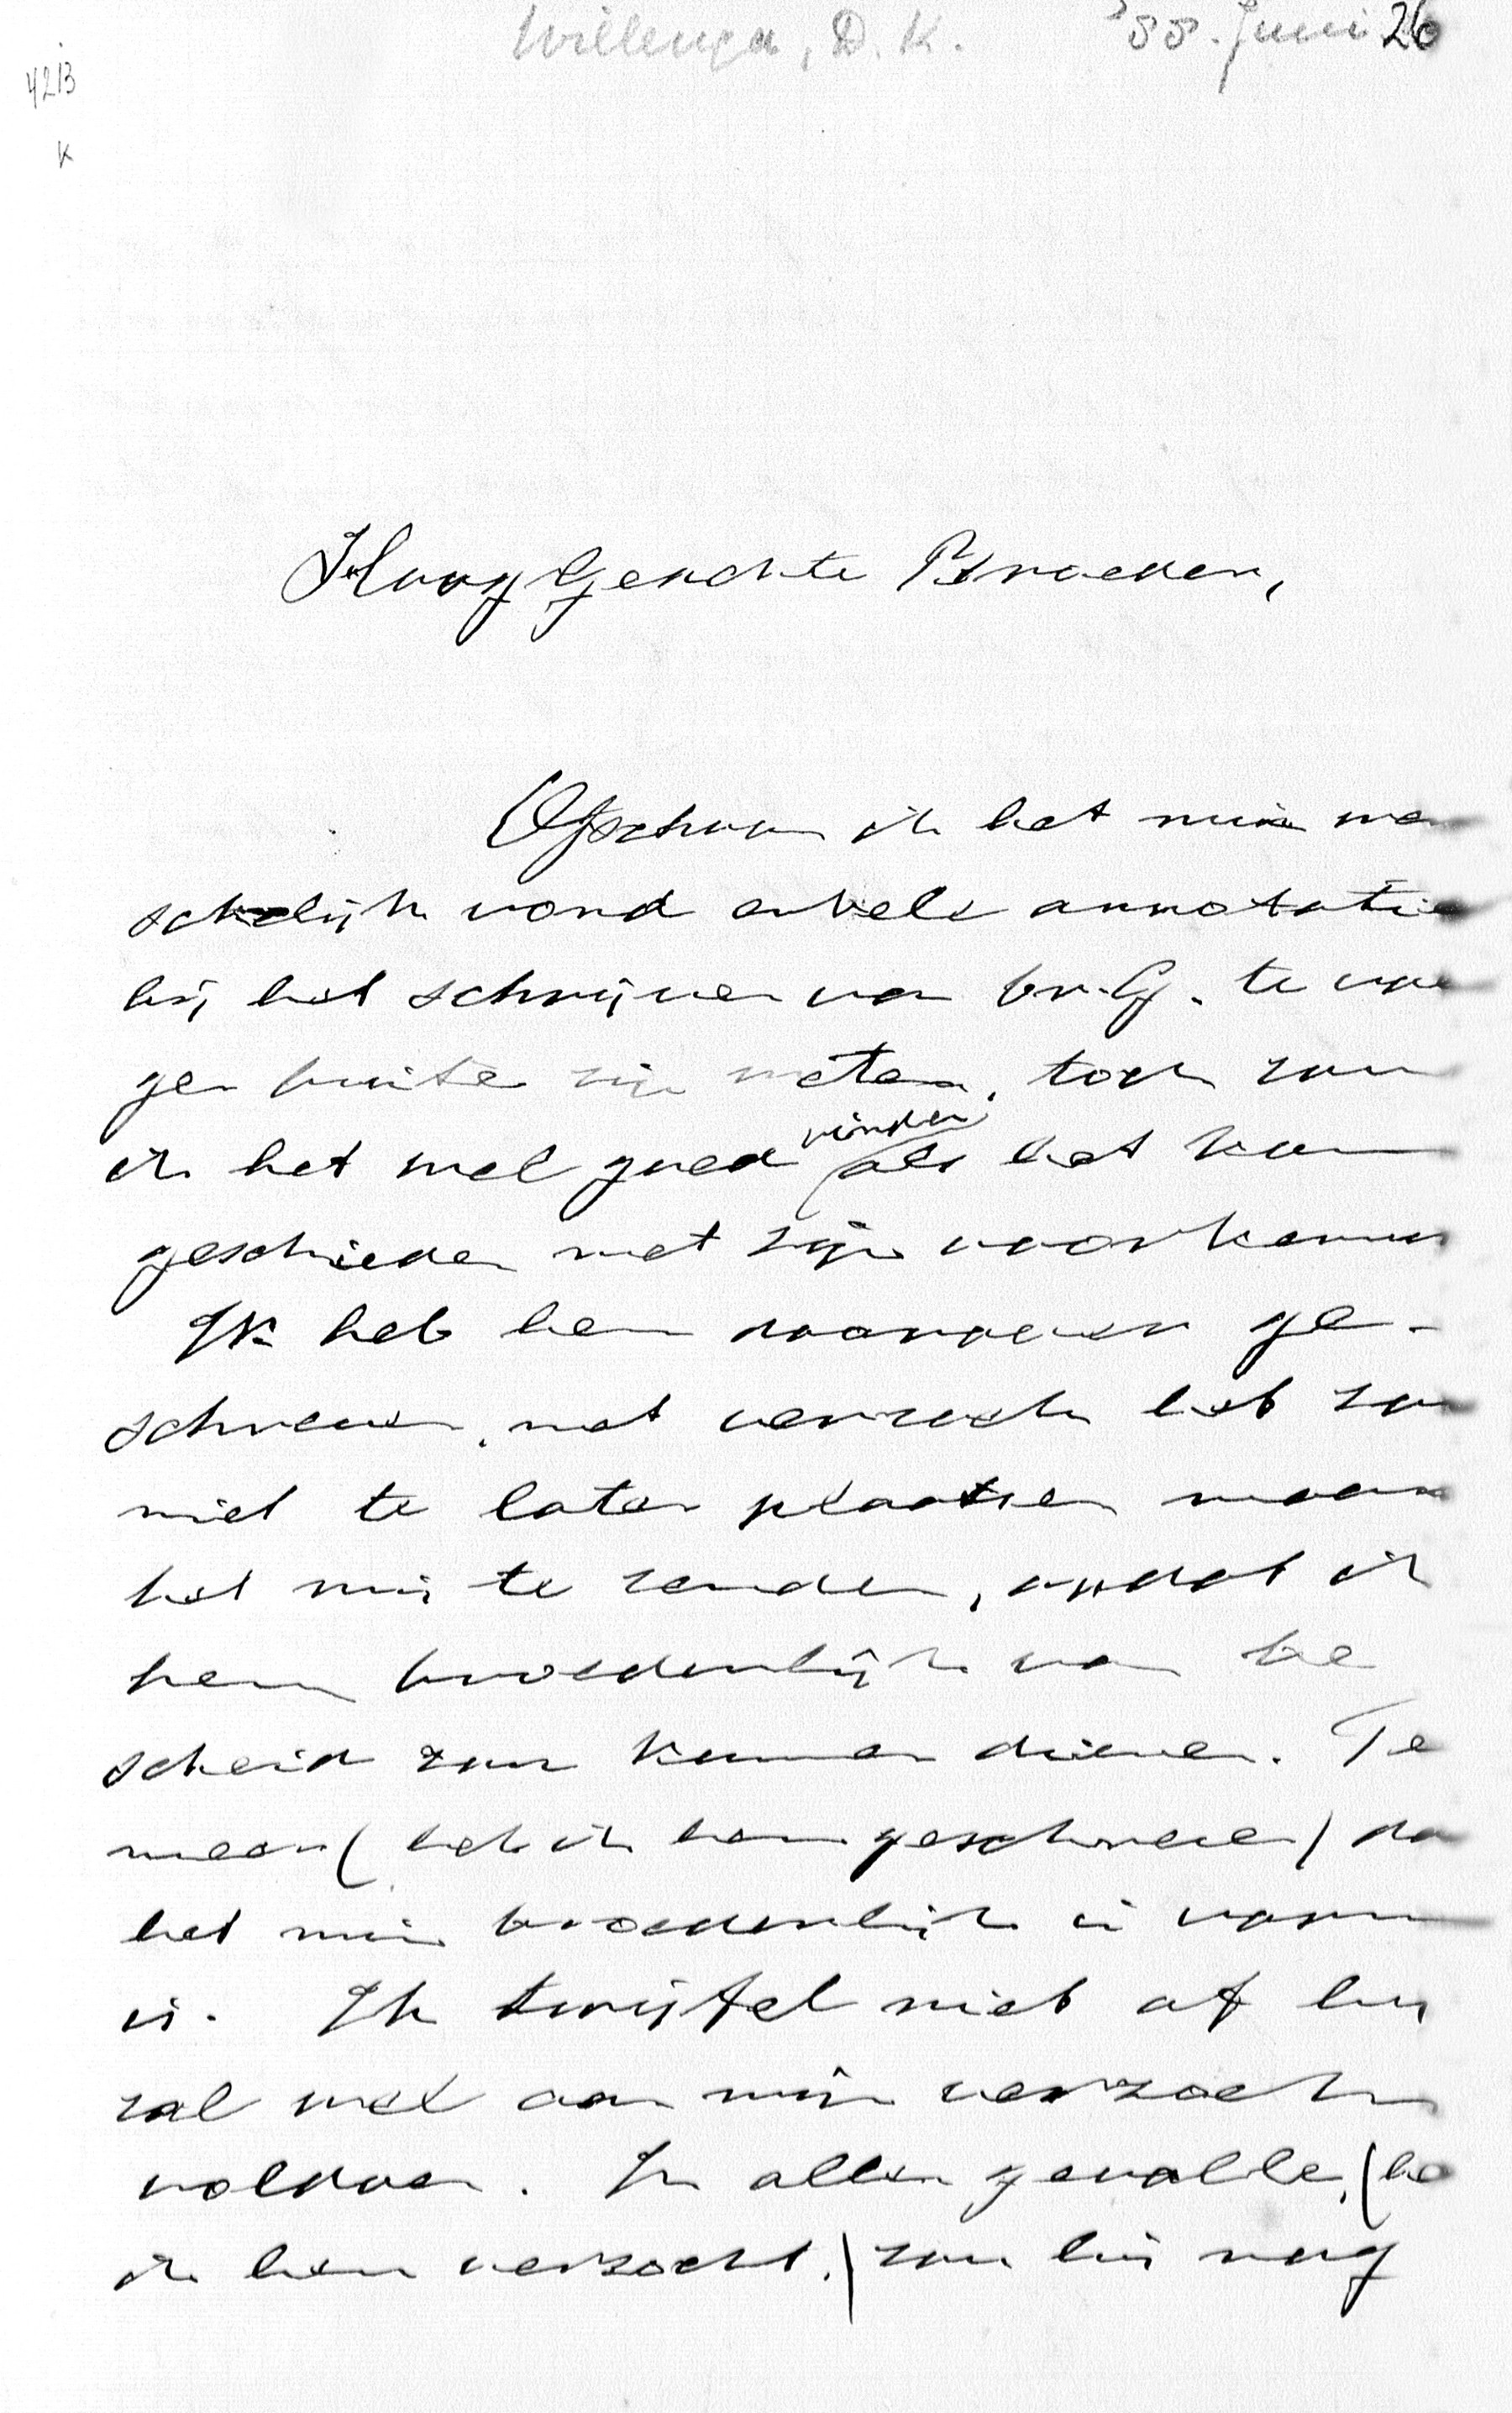 Willenga, D. K. '88. Juni 26
4213
K
Hooggeachte Broeder,
Ofschoon ik het min wen
schelijk vond enkele annotatie
bij het schrijven van br. G. te voe
gen buiten zijn weten, toch zou
ik het wel goed vinden als het kon
geschieden met zijn voorkennis
Ik heb hem daarover ge-
schreven, met verzoek het zoo
niet te laten plaatsen maar
het mij te zenden, opdat ik
hem broederlijk van be
scheid zou kunnen dienen. Te
meer (heb ik hem geschreven) daar
het min broederlijk in vorm
is. Ik twijfel niet of hij
zal wel aan mijn verzoek
voldoen. In allen gevalle, (he
ik hem verzocht,) zou hij nog